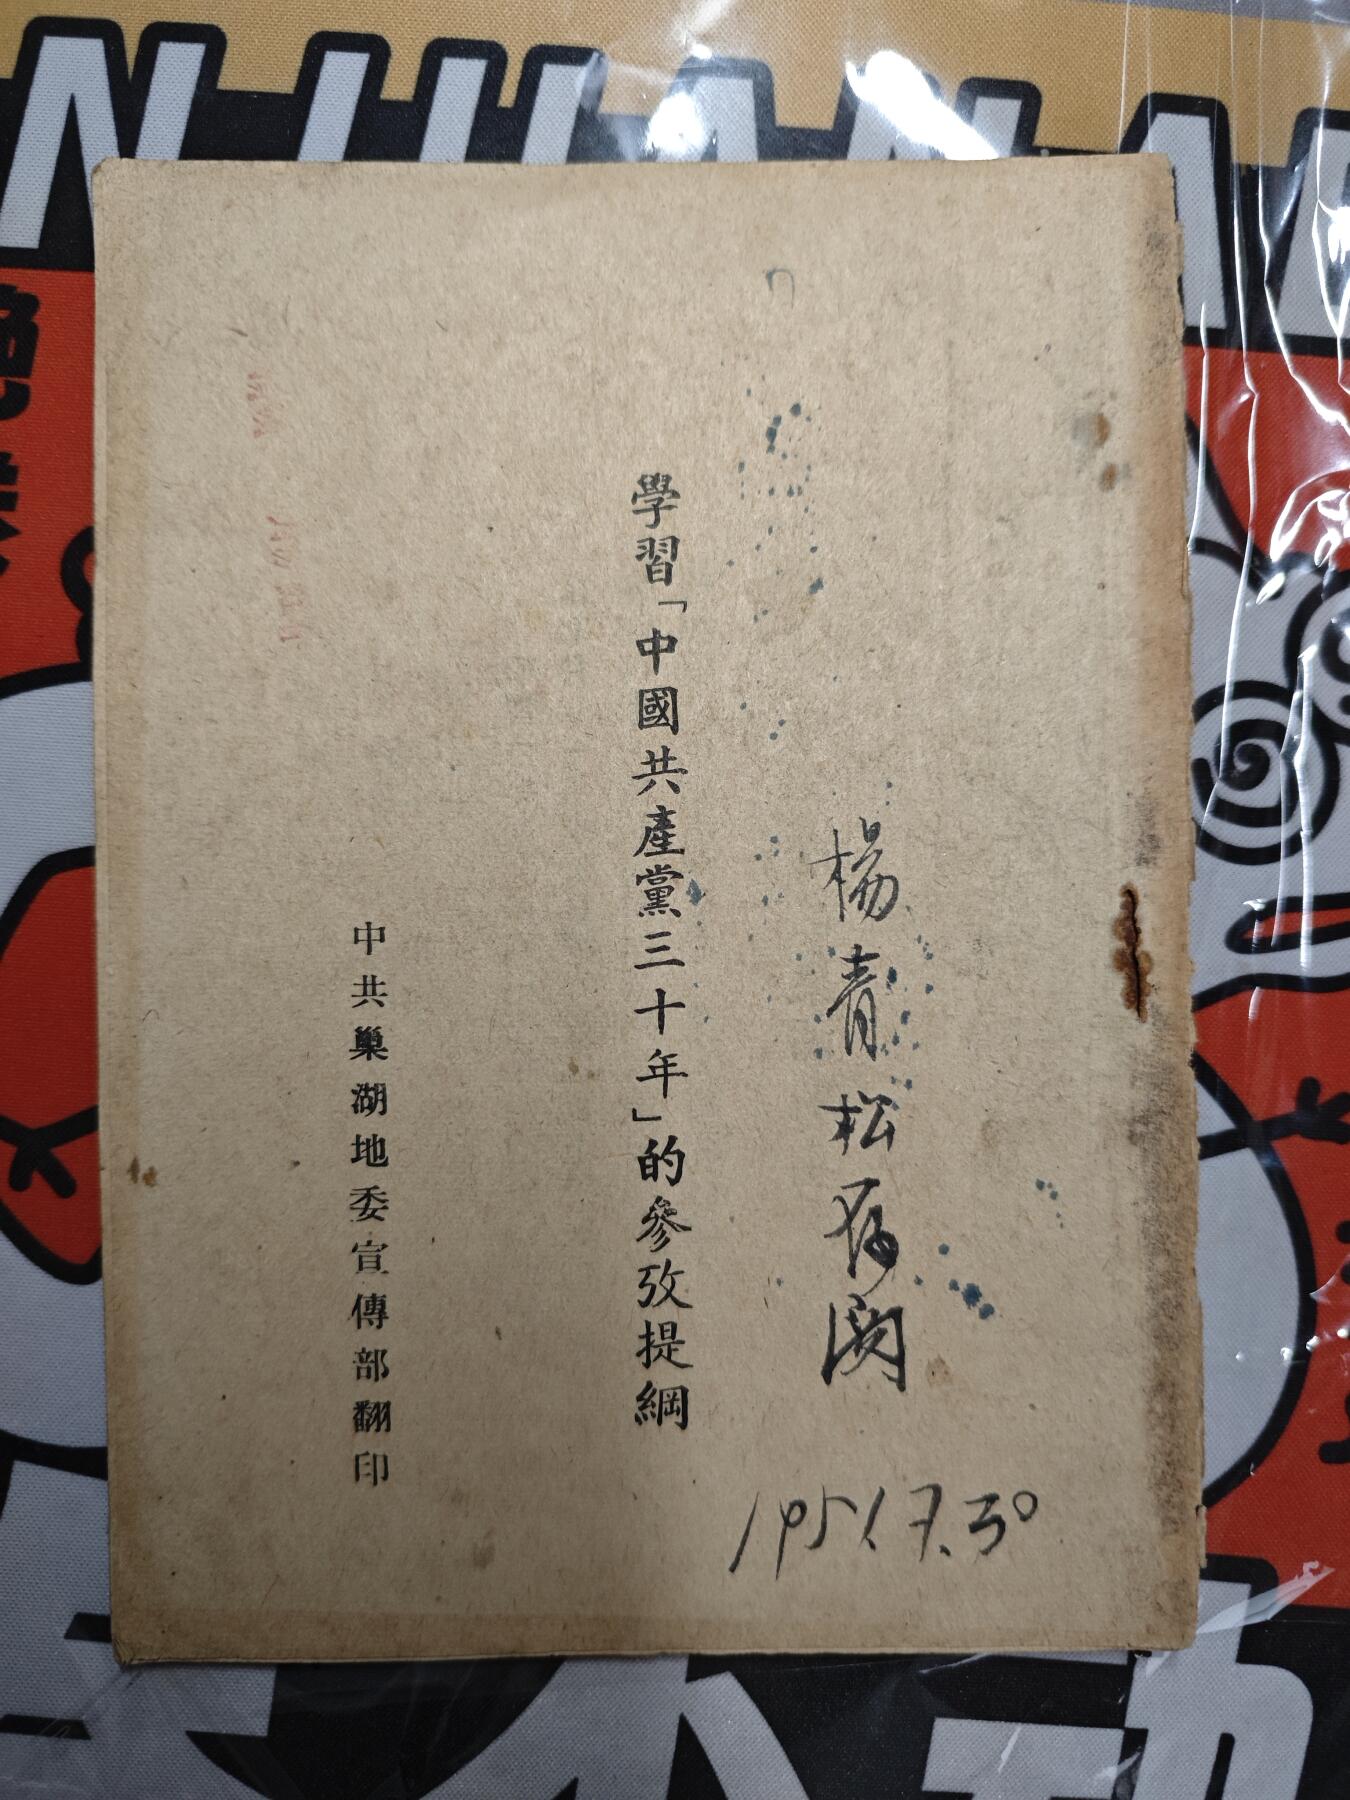 楊青松存閱
1951.7.30
學習「中國共產黨三十年」的參攷提綱
中共巢湖地委宣傳部翻印